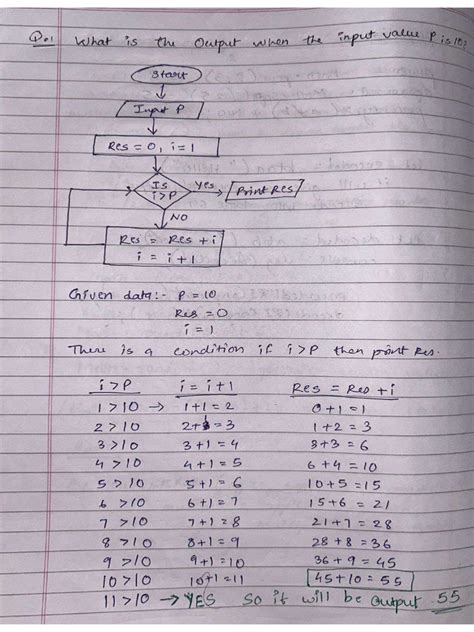 Q.1 What is the Output when the input value P is 10?
Start
Input P
Res = 0, i = 1
Is i > P
Yes
Print Res
NO
Res = Res + i
i = i + 1
Given data:- P = 10
Res = 0
i = 1
There is a condition if i > P then print Res.
i > P    i = i + 1    Res = Res + i
1 > 10 → 1 + 1 = 2    0 + 1 = 1
2 > 10    2 + 1 = 3    1 + 2 = 3
3 > 10    3 + 1 = 4    3 + 3 = 6
4 > 10    4 + 1 = 5    6 + 4 = 10
5 > 10    5 + 1 = 6    10 + 5 = 15
6 > 10    6 + 1 = 7    15 + 6 = 21
7 > 10    7 + 1 = 8    21 + 7 = 28
8 > 10    8 + 1 = 9    28 + 8 = 36
9 > 10    9 + 1 = 10    36 + 9 = 45
10 > 10    10 + 1 = 11    45 + 10 = 55
11 > 10 → YES So it will be output 55